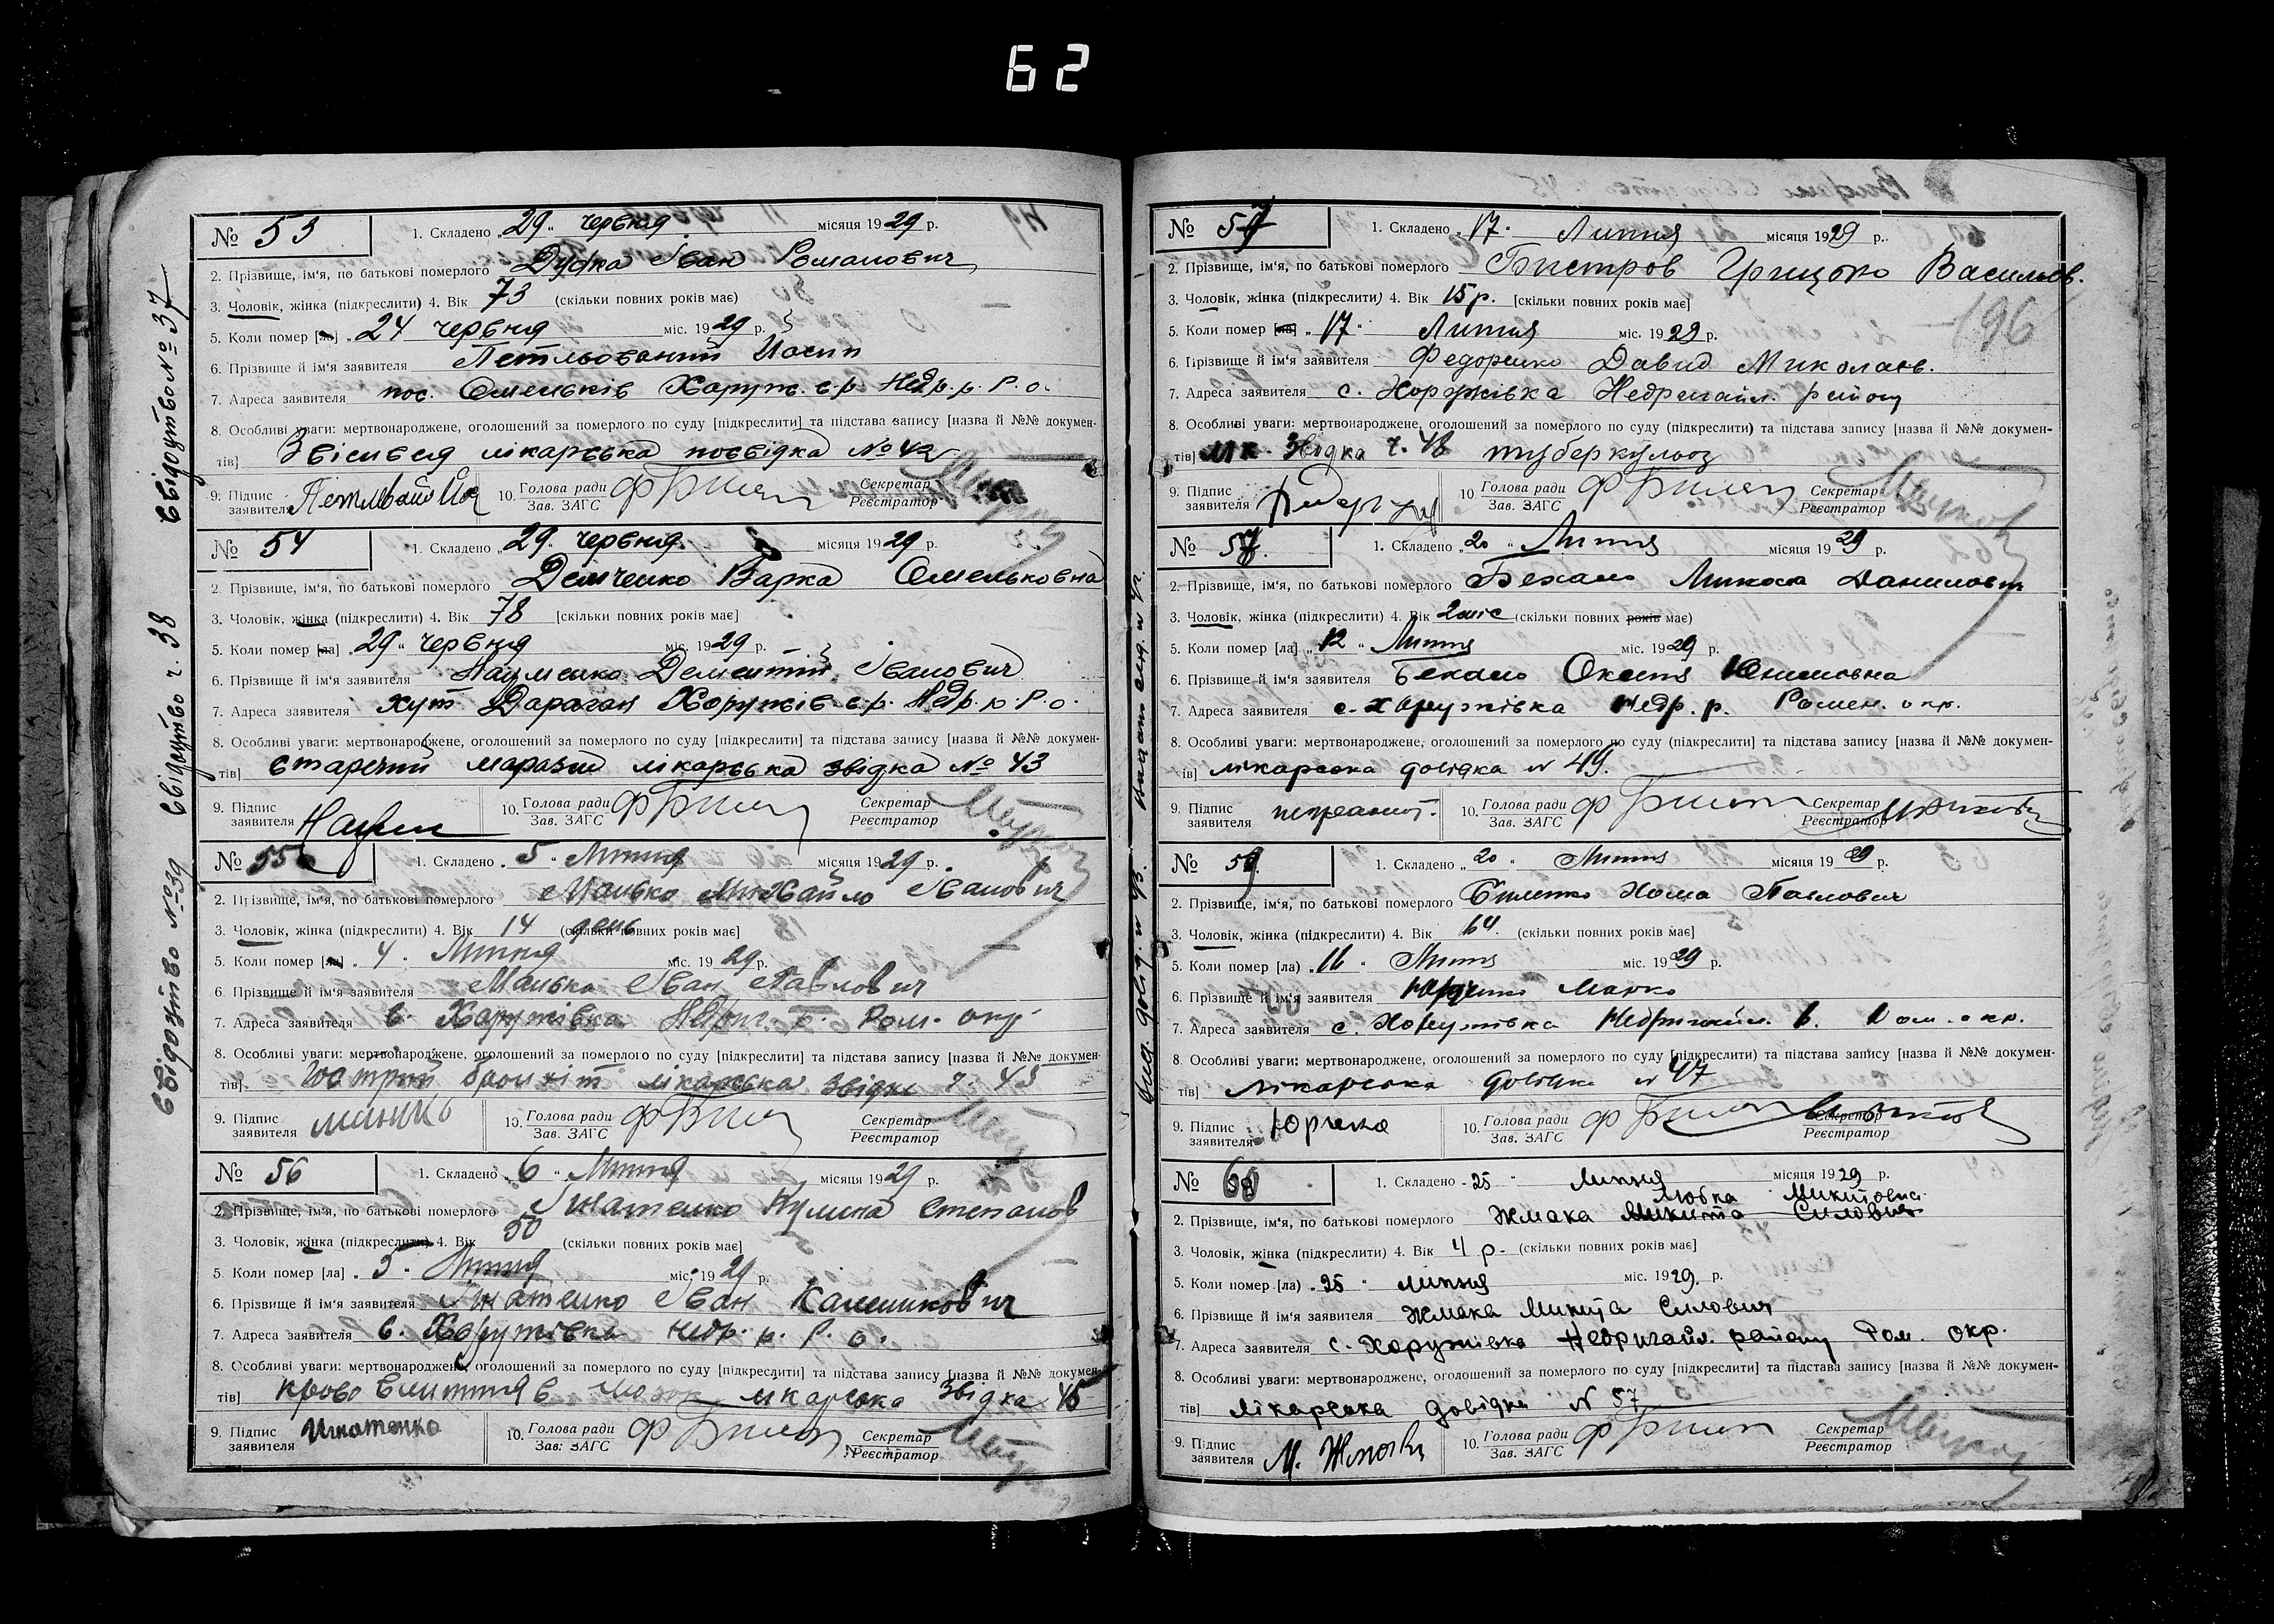 62
Свідоцтво № 37
Свідоцтво ч. 38
Свідоцтво № 39
№ 53
1. Складено „29“ червня місяця 1929 р.
2. Прізвище, ім'я, по батькові померлого Дудка Іван Романович
3. Чоловік, жінка (підкреслити) 4. Вік 73 (скільки повних років має)
5. Коли помер [ла] „24 червня міс. 1929 р.
6. Прізвище й ім'я заявителя Петльований Йосип
7. Адреса заявителя пос. Омельків Харуж. с.р. Недр. р. Р. о.
8. Особливі уваги: мертвонароджене, оголошений за померлого по суду [підкреслити] та підстава запису [назва й №№ докумен-
тів] лікарська посвідка № 42
9. Підпис заявителя
10. Голова ради Зав. ЗАГС
Секретар Реєстратор
№ 54
1. Складено „29“ червня місяця 1929 р.
2. Прізвище, ім'я, по батькові померлого Демченко Варка Омельковна
3. Чоловік, жінка (підкреслити) 4. Вік 78 [скільки повних років має]
5. Коли помер [ла] „29“ червня міс. 1929 р.
6. Прізвище й ім'я заявителя Науменко Дементій Іванович
7. Адреса заявителя хут Дараган Хоружів. с.р. Недр. р. Р. о.
8. Особливі уваги: мертвонароджене, оголошений за померлого по суду [підкреслити] та підстава запису [назва й №№ докумен-
тів] старечий маразм лікарська звідка № 43
9. Підпис заявителя
10. Голова ради Зав. ЗАГС
Секретар Реєстратор
№ 55
1. Складено „5“ Липня місяця 1929 р.
2. Прізвище, ім'я, по батькові померлого Манько Михайло Іванович
3. Чоловік, жінка (підкреслити) 4. Вік 14 день (скільки повних років має]
5. Коли помер [ла] „4“ Липня міс. 1929 р.
6. Прізвище й ім'я заявителя Манько Іван Павлович
7. Адреса заявителя с. Харужівка Недриг. р. Ром. окр.
8. Особливі уваги: мертвонароджене, оголошений за померлого по суду [підкреслити] та підстава запису [назва й №№ докумен-
тів] Гострий бронхіт лікарська звідка ч. 45
9. Підпис заявителя Манько
10. Голова ради Зав. ЗАГС
Секретар Реєстратор
№ 56
1. Складено „6“ Липня місяця 1929 р.
2. Прізвище, ім'я, по батькові померлого Ігнатенко Кулина Степанов
3. Чоловік, жінка (підкреслити) 4. Вік 50 (скільки повних років має]
5. Коли помер [ла] „5“ Липня міс. 1929 р.
6. Прізвище й ім'я заявителя Ігнатенко Іван
7. Адреса заявителя с. Хоружівка Недр. р. Р. о.
8. Особливі уваги: мертвонароджене, оголошений за померлого по суду [підкреслити] та підстава запису [назва й №№ докумен-
тів] лікарська звідка 46
9. Підпис заявителя Игнатенко
10. Голова ради Зав. ЗАГС
Секретар Реєстратор
196
№ 57
1. Складено „17“ Липня місяця 1929 р.
2. Прізвище, ім'я, по батькові померлого Бистров Грицько Васильєв.
3. Чоловік, жінка (підкреслити) 4. Вік 15 р. [скільки повних років має]
5. Коли помер [ла] „17“ Липня міс. 1929 р.
6. Прізвище й ім'я заявителя Федоренко Давид Миколаєв.
7. Адреса заявителя с. Хоружівка Недригайл. району
8. Особливі уваги: мертвонароджене, оголошений за померлого по суду (підкреслити) та підстава запису [назва й №№ докумен-
тів] лік. звідка ч. 48 туберкульоз
9. Підпис заявителя
10. Голова ради Зав. ЗАГС
Секретар Реєстратор
№
1. Складено „20“ Липня місяця 1929 р.
2. Прізвище, ім'я, по батькові померлого Микола Данилович
3. Чоловік, жінка (підкреслити) 4. Вік 2 міс (скільки повних років має)
5. Коли помер [ла] „12“ Липня міс. 1929 р.
6. Прізвище й ім'я заявителя
7. Адреса заявителя с. Хоружівка Недр. р. Ромен. окр.
8. Особливі уваги: мертвонароджене, оголошений за померлого по суду (підкреслити] та підстава запису [назва й №№ докумен-
тів] лікарська довідка № 49.
9. Підпис заявителя
10. Голова ради Зав. ЗАГС
Секретар Реєстратор
№ 59
1. Складено „20“ Липня місяця 1929 р.
2. Прізвище, ім'я, по батькові померлого Хома Павлович
3. Чоловік, жінка (підкреслити) 4. Вік 64. (скільки повних років має]
5. Коли помер [ла) „16“ Липня міс. 1929 р.
6. Прізвище й ім'я заявителя Юрченко Марко
7. Адреса заявителя с. Хоружівка Недригайл. р. Ром. окр.
8. Особливі уваги: мертвонароджене, оголошений за померлого по суду [підкреслити) та підстава запису [назва й №№ докумен-
тів] лікарська довідка № 47
9. Підпис заявителя
10. Голова ради Зав. ЗАГС
Секретар Реєстратор
№ 60
1. Складено „25“ липня місяця 1929 р.
Любка Микитовна
2. Прізвище, ім'я, по батькові померлого Жмака Микита Силович
3. Чоловік, жінка (підкреслити) 4. Вік 4 р. (скільки повних років має]
5. Коли помер [ла) „25“ липня міс. 1929. р.
6. Прізвище й ім'я заявителя Жмака Микита Силович
7. Адреса заявителя с. Харужівка Недригайл. району Ром. окр.
8. Особливі уваги: мертвонароджене, оголошений за померлого по суду [підкреслити] та підстава запису [назва й №№ докумен-
тів] лікарська довідка № 57
9. Підпис заявителя М. Жмака
10. Голова ради Зав. ЗАГС
Секретар Реєстратор